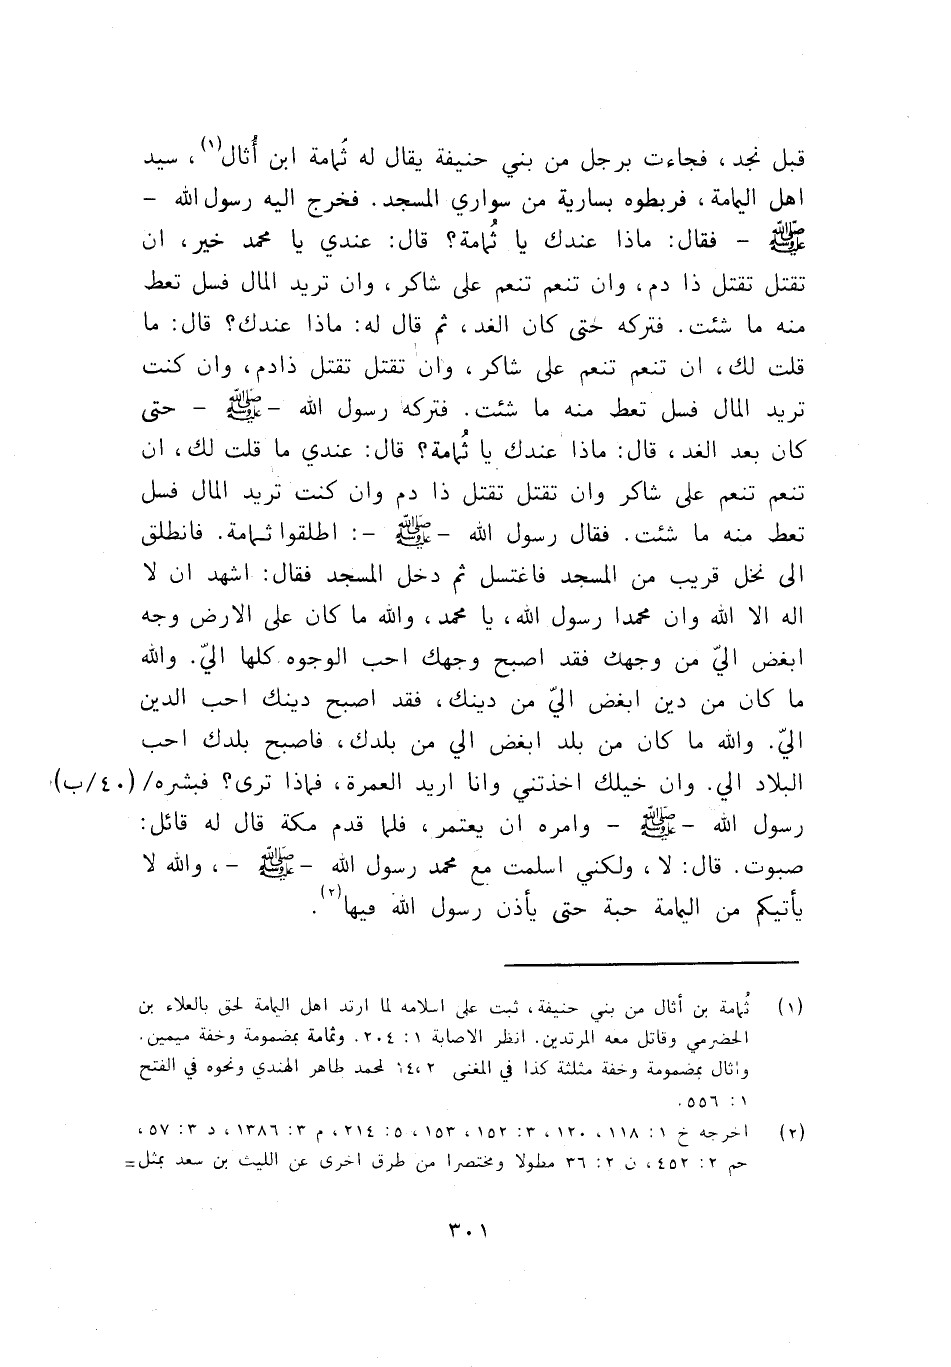 قبل نجد، فجاءت برجل من بني حنيفة يقال له ثُمامة ابن أُثال(١)، سيد
اهل اليمامة، فربطوه بسارية من سواري المسجد. فخرج اليه رسول الله -
ﷺ - فقال: ماذا عندك يا ثُمامة؟ قال: عندي يا محمد خير، ان
تقتل تقتل ذا دم، وان تنعم تنعم على شاكر، وان تريد المال فسل تعط
منه ما شئت. فتركه حتى كان الغد، ثم قال له: ماذا عندك؟ قال: ما
قلت لك، ان تنعم تنعم على شاكر، وان تقتل تقتل ذادم، وان كنت
تريد المال فسل تعط منه ما شئت. فتركه رسول الله -ﷺ - حتى
كان بعد الغد، قال: ماذا عندك يا ثُمامة؟ قال: عندي ما قلت لك، ان
تنعم تنعم على شاكر وان تقتل تقتل ذا دم وان كنت تريد المال فسل
تعط منه ما شئت. فقال رسول الله -ﷺ -: اطلقوا ثمامة. فانطلق
الى نخل قريب من المسجد فاغتسل ثم دخل المسجد فقال: اشهد ان لا
اله الا الله وان محمدا رسول الله، يا محمد، والله ما كان على الارض وجه
ابغض اليّ من وجهك فقد اصبح وجهك احب الوجوه كلها اليّ. والله
ما كان من دين ابغض اليّ من دينك، فقد اصبح دينك احب الدين
اليّ. والله ما كان من بلد ابغض الي من بلدك، فاصبح بلدك احب
البلاد الي. وان خيلك اخذتني وانا اريد العمرة، فماذا ترى؟ فبشره/ (٤٠/ب)
رسول الله -ﷺ - وامره ان يعتمر، فلما قدم مكة قال له قائل:
صبوت. قال: لا، ولكني اسلمت مع محمد رسول الله -ﷺ -، والله لا
يأتيكم من اليمامة حبة حتى يأذن رسول الله فيها(٢).
(١) ثُمامة بن أثال من بني حنيفة، ثبت على اسلامه لما ارتد اهل اليمامة لحق بالعلاء بن
الحضرمي وقاتل معه المرتدين. انظر الاصابة ١: ٢٠٤. وثمامة بمضمومة وخفة ميمين.
واثال بمضمومة وخفة مثلثة كذا في المغنى ١٤،٢ لمحمد طاهر الهندي ونحوه في الفتح
١: ٥٥٦.
(٢) اخرجه خ ١: ١١٨، ١٢٠، ٣: ١٥٢، ١٥٣، ٥: ٢١٤، م ٣: ١٣٨٦، د ٣: ٥٧،
حم ٢: ٤٥٢، ن ٢: ٣٦ مطولا ومختصرا من طرق اخرى عن الليث بن سعد بمثل=
٣٠١